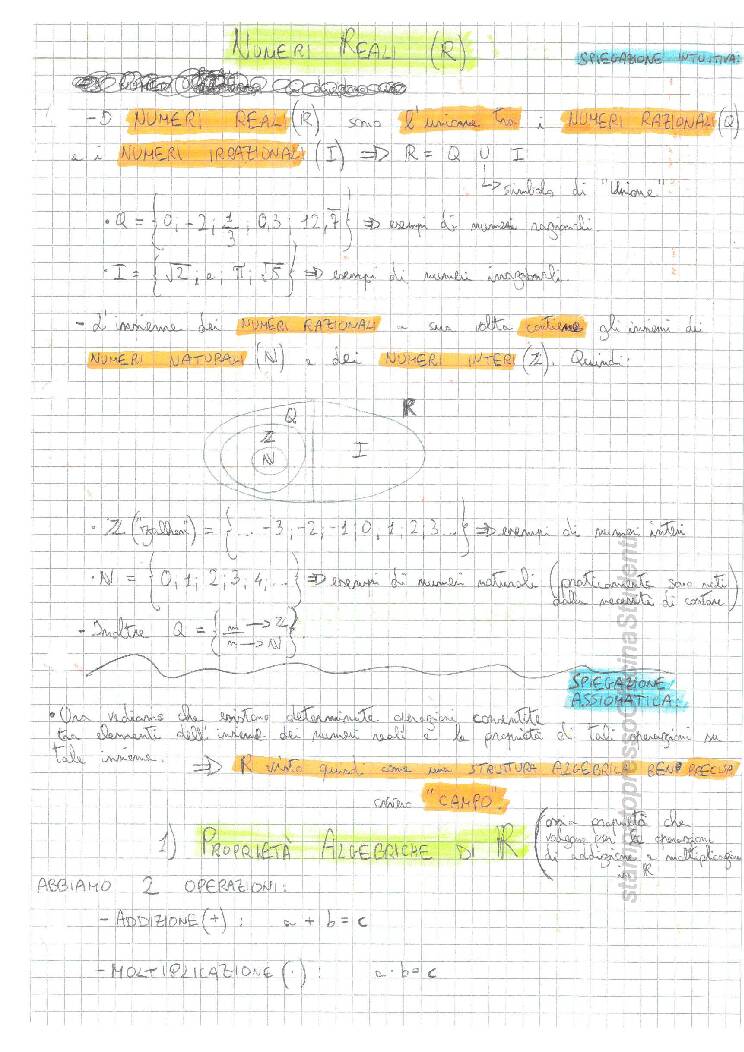 NUMERI REALI (R)
SPIEGAZIONE INTUITIVA:
→ NUMERI REALI (ℝ) sono l'unione tra i NUMERI RAZIONALI (Q)
e i NUMERI IRRAZIONALI (I) ⇒ R = Q ∪ I
↳ simbolo di "Unione"
• Q = {0; -2; 1/3; 0,3; 12,7̅} ⇒ esempi di numeri razionali.
• I = {√2; e; π; √5} ⇒ esempi di numeri irrazionali.
- L'insieme dei NUMERI RAZIONALI a sua volta contiene gli insiemi dei
NUMERI NATURALI (ℕ) e dei NUMERI INTERI (ℤ). Quindi:
Q ℝ
ℤ
ℕ I
• ℤ ("zahlen") = {... -3; -2; -1; 0; 1; 2; 3...} ⇒ esempi di numeri interi
• ℕ = {0; 1; 2; 3; 4; ...} ⇒ esempi di numeri naturali (praticamente sono nati
dalla necessità di contare)
- Inoltre Q = {m → ℤ / n → ℕ}.
SPIEGAZIONE
ASSIOMATICA:
• Ora vediamo che esistono determinate operazioni consentite
tra elementi dell'insieme dei numeri reali e le proprietà di tali operazioni su
tale insieme. ⇒ R visto quindi come una STRUTTURA ALGEBRICA BEN PRECISA
ovvero "CAMPO".
1) PROPRIETÀ ALGEBRICHE DI ℝ (ossia proprietà che
valgono per le operazioni
di addizione e moltiplicazione
in ℝ
ABBIAMO 2 OPERAZIONI:
- ADDIZIONE (+) : a + b = c
- MOLTIPLICAZIONE (·) : a · b = c
stampatopressoOfficinaStudenti